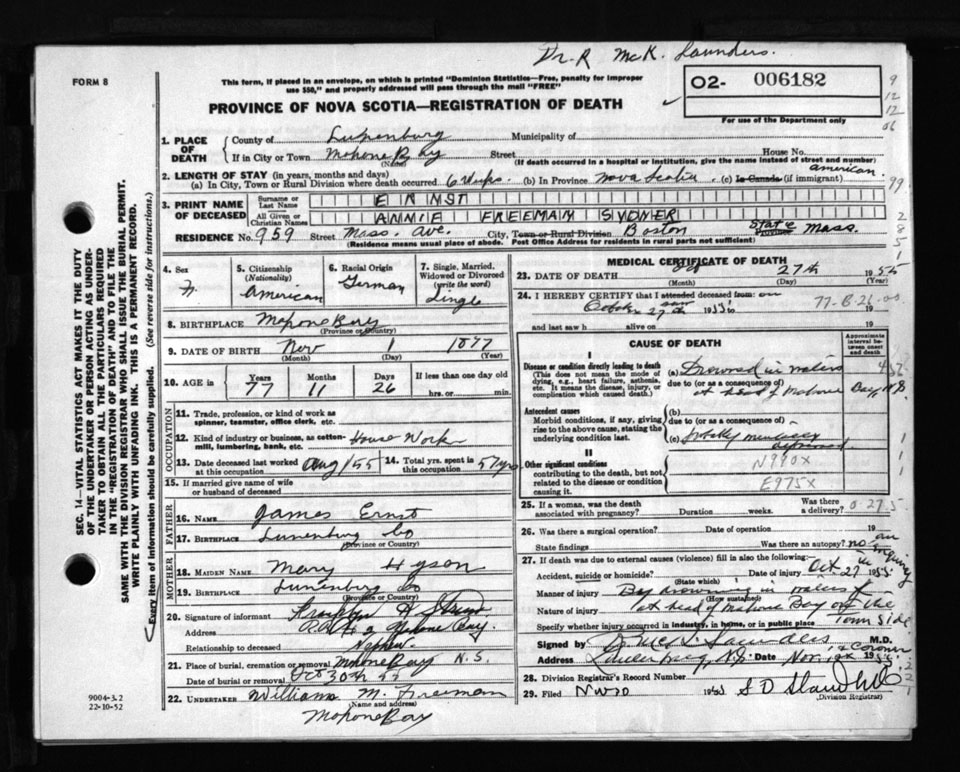 Dr. R McK. Saunders.
FORM 8
This form, if placed in an envelope, on which is printed "Dominion Statistics—Free, penalty for improper
use $50," and properly addressed will pass through the mail "FREE"
O2- 006182
For use of the Department only
9
12
12
06
PROVINCE OF NOVA SCOTIA—REGISTRATION OF DEATH
1. PLACE OF DEATH County of Lunenburg Municipality of
If in City or Town Mahone Bay (Name) Street House No.
(If death occurred in a hospital or institution, give the name instead of street and number)
2. LENGTH OF STAY (in years, months and days)
(a) In City, Town or Rural Division where death occurred 6 Weeks. (b) In Province Nova Scotia. (c) In Canada (if immigrant) American.
99
3. PRINT NAME OF DECEASED Surname or Last Name ERNST
All Given or Christian Names ANNIE FREEMAN SYDNER
RESIDENCE No. 959 Street Mass. Ave. City, Town or Rural Division Boston State Mass.
(Residence means usual place of abode. Post Office Address for residents in rural parts not sufficient)
4. Sex F.
5. Citizenship (Nationality) American
6. Racial Origin German
7. Single, Married, Widowed or Divorced (write the word) Single
8. BIRTHPLACE Mahone Bay
(Province or Country)
9. DATE OF BIRTH Nov 1 1877
(Month) (Day) (Year)
10. AGE in Years 77 Months 11 Days 26 If less than one day old
hrs. or min.
OCCUPATION
11. Trade, profession, or kind of work as
spinner, teamster, office clerk, etc.
12. Kind of industry or business, as cotton-
mill, lumbering, bank, etc. House Work
13. Date deceased last worked at this occupation Aug/55 14. Total yrs. spent in this occupation 57 yrs
15. If married give name of wife
or husband of deceased
FATHER
16. NAME James Ernst
17. BIRTHPLACE Lunenburg Co
(Province or Country)
MOTHER
18. MAIDEN NAME Mary Hyson
19. BIRTHPLACE Lunenburg Co
(Province or Country)
20. Signature of informant
Address Mahone Bay
Relationship to deceased Nephew
21. Place of burial, cremation or removal Mahone Bay N.S.
Date of burial or removal Oct 30th 55
22. UNDERTAKER William M. Freeman
(Name and address)
Mahone Bay
MEDICAL CERTIFICATE OF DEATH
23. DATE OF DEATH 27th 195
(Month) (Day)
24. I HEREBY CERTIFY that I attended deceased from: saw on
October 27th 1955 to 19
77-B-26-00
and last saw h alive on 19
CAUSE OF DEATH
Approximate interval between onset and death
I
Disease or condition directly leading to death
(This does not mean the mode of dying, e.g., heart failure, asthenia, etc. It means the disease, injury, or complication which caused death.)
(a) Drowned in waters
due to (or as a consequence of)
at head of Mahone Bay N.S.
Antecedent causes
Morbid conditions, if any, giving rise to the above cause, stating the underlying condition last.
(b)
due to (or as a consequence of)
(c) probably mentally depressed
II
Other significant conditions
contributing to the death, but not related to the disease or condition causing it.
N990X
E975X
25. If a woman, was the death
associated with pregnancy? Duration weeks. Was there a delivery?
0 27 5
26. Was there a surgical operation? Date of operation 19
State findings Was there an autopsy? no an inquiry
27. If death was due to external causes (violence) fill in also the following:
Accident, suicide or homicide? (State which) Date of injury Oct 27 1955
Manner of injury By drowning in waters
(How sustained)
Nature of injury at head of Mahone Bay on the
Specify whether injury occurred in industry, in home, or in public place Town side
Signed by R McK. Saunders M.D.
& Coroner
Address Lunenburg, N.S. Date Nov. 195
28. Division Registrar's Record Number
29. Filed Nov 10 1955
(Division Registrar)
SEC. 14—VITAL STATISTICS ACT MAKES IT THE DUTY
OF THE UNDERTAKER OR PERSON ACTING AS UNDER-
TAKER TO OBTAIN ALL THE PARTICULARS REQUIRED
IN THE "REGISTRATION OF DEATH" AND TO FILE THE
SAME WITH THE DIVISION REGISTRAR WHO SHALL ISSUE THE BURIAL PERMIT.
WRITE PLAINLY WITH UNFADING INK. THIS IS A PERMANENT RECORD.
Every item of information should be carefully supplied. (See reverse side for instructions.)
9004-3.2
22-10-52